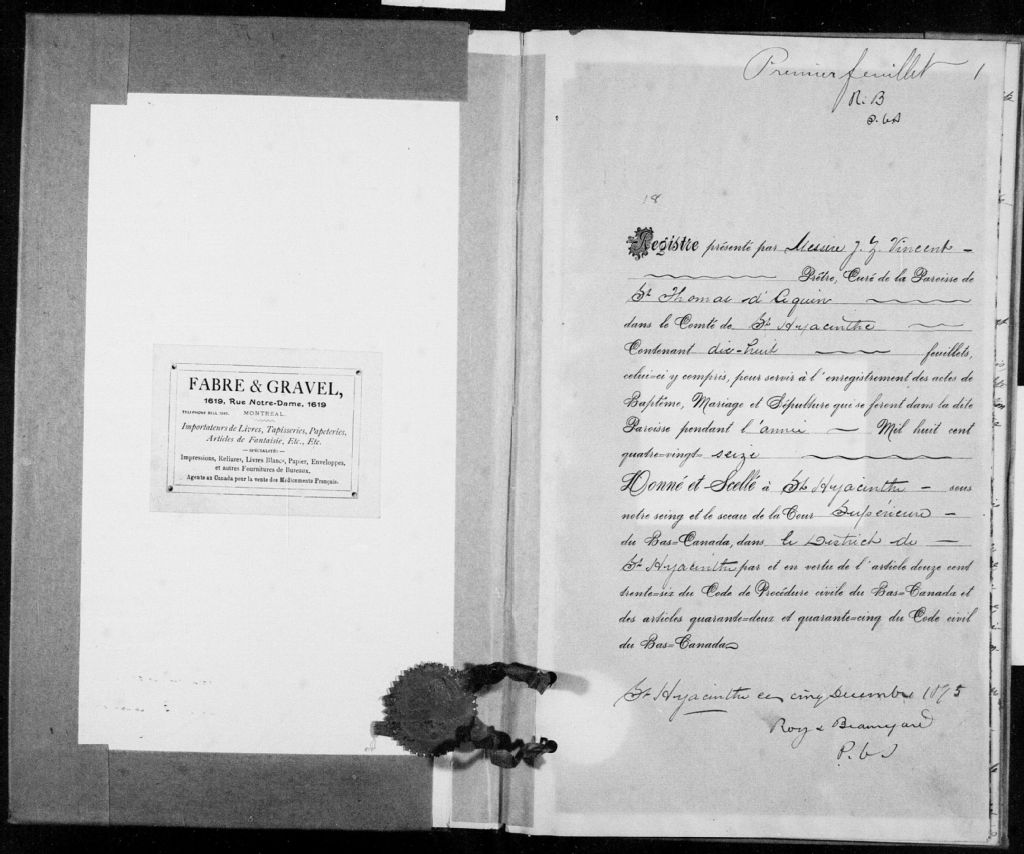 FABRE & GRAVEL,
1619, Rue Notre-Dame, 1619
TELEPHONE BELL
MONTREAL.
Importateurs de Livres, Tapisseries, Papeteries,
Articles de Fantaisie, Etc., Etc.
—SPÉCIALITÉ:—
Impressions, Reliures, Livres Blancs, Papier, Enveloppes,
et autres Fournitures de Bureaux.
Agents au Canada pour la vente des Médicaments Français.
Premier feuillet 1
R. B
P. C S
18
Registre présenté par Messire J. Z. Vincent –
Prêtre, Curé de la Paroisse de
St Thomas d'Aquin
dans le Comté de St Hyacinthe
Contenant dix-huit feuillets,
celui=ci y compris, pour servir à l'enregistrement des actes de
Baptême, Mariage et Sépulture qui se feront dans la dite
Paroisse pendant l'année – Mil huit cent
quatre=vingt= seize
Donné et Scellé à St Hyacinthe – sous
notre seing et le sceau de la Cour Supérieure –
du Bas=Canada, dans le District de –
St Hyacinthe par et en vertu de l'article douze cent
trente=six du Code de Procédure civile du Bas=Canada et
des articles quarante=deux et quarante=cinq du Code civil
du Bas=Canada
St Hyacinthe ce cinq Decembre 1895
Roy & Beauregard
P. C S